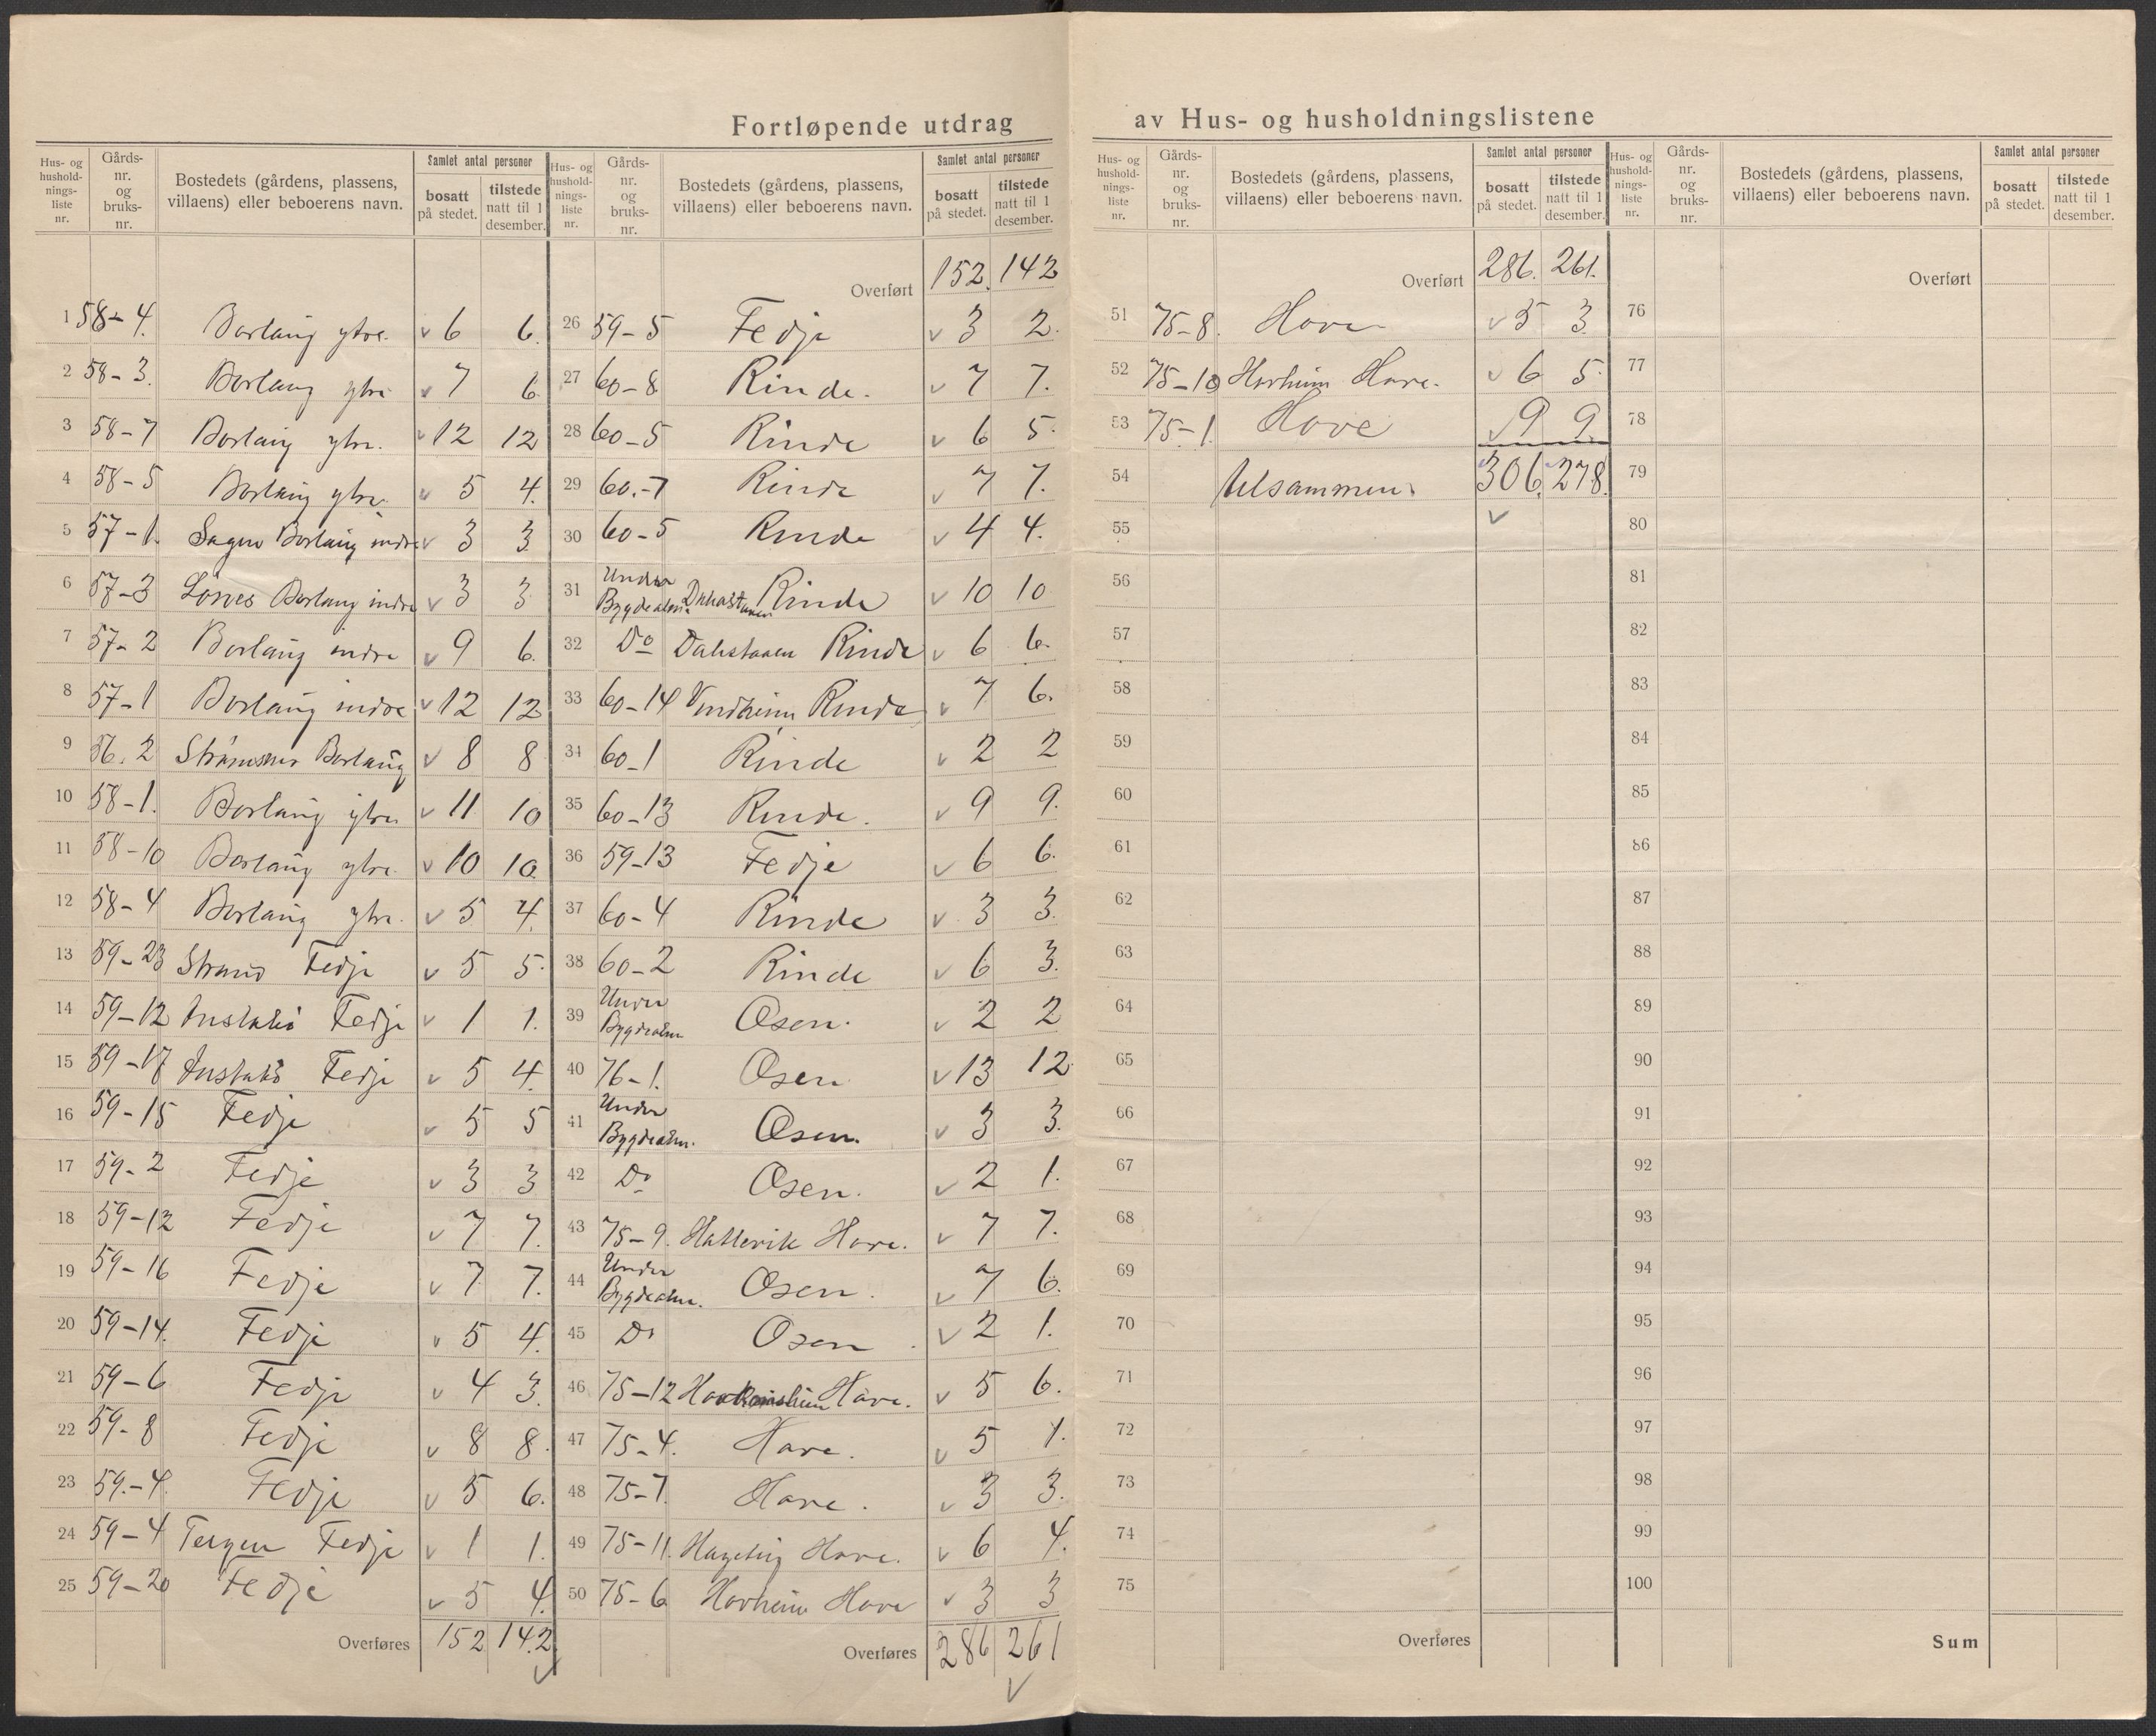 Fortløpende utdrag av Hus- og husholdningslistene
Hus- og husholdnings-liste nr. | Gårds-nr. og bruks-nr. | Bostedets (gårdens, plassens, villaens) eller beboerens navn. | Samlet antal personer | bosatt på stedet. | tilstede natt til 1 desember.
1 58-4. Borlaug ytre. v 6 6.
2 58-3. Borlaug ytre v 7 6
3 58-7 Borlaug ytre. v 12 12
4 58-5 Borlaug ytre. v 5 4.
5 57-1. Borlaug indre v 3 3
6 57-3 Borlaug indre v 3 3
7 57-2 Borlaug indre v 9 6.
8 57-1 Borlaug indre v 12 12
9 56.2 Borlaug v 8 8
10 58-1. Borlaug ytre v 11 10
11 58-10 Borlaug ytre. v 10 10.
12 58-4 Borlaug ytre. v 5 4.
13 59-23 Strand Fedje v 5 5.
14 59-12 Fedje v 1 1.
15 59-17 Fedje v 5 4.
16 59-15 Fedje v 5 5
17 59-2 Fedje v 3 3
18 59-12 Fedje v 7 7.
19 59-16 Fedje v 7 7.
20 59-14. Fedje v 5 4.
21 59-6 Fedje v 4 3.
22 59-8 Fedje v 8 8.
23 59.-4. Fedje v 5 6.
24 59-4 Teigen Fedje v 1 1.
25 59-20 Fedje v 5 4.
Overføres 152 142
v
Hus- og husholdnings-liste nr. | Gårds-nr. og bruks-nr. | Bostedets (gårdens, plassens, villaens) eller beboerens navn. | Samlet antal personer | bosatt på stedet. | tilstede natt til 1 desember.
Overført 152. 142
26 59-5 Fedje v 3 2.
27 60-8 Rinde. v 7 7.
28 60-5 Rinde v 6 5.
29 60.-7 Rinde v 7 7.
30 60-5 Rinde v 4 4.
31 Under Bygdealm. Rinde v 10 10
32 Do Rinde v 6 6.
33 60-14 Vindheim Rinde v 7 6.
34 60-1 Rinde v 2 2
35 60-13 Rinde. v 9 9.
36 59-13 Fedje v 6 6.
37 60-4 Rinde v 3 3.
38 60-2 Rinde v 6 3.
39 Under Bygdealm Osen. v 2 2
40 76-1. Osen v 13 12.
41 Under Bygdealm. Osen. v 3 3.
42 Do Osen. v 2 1.
43 75-9. Hatlevik Hove. v 7 7.
44 Under Bygdealm. Osen. v 7 6.
45 Do Osen. v 2 1.
46 75-12 Hove. v 5 6.
47 75-4. Hove. v 5 1.
48 75-7. Hove. v 3 3.
49 75-11. Hove. v 6 4.
50 75-6 Hovheim Hove v 3 3
Overføres 286 261
v
Hus- og husholdnings-liste nr. | Gårds-nr. og bruks-nr. | Bostedets (gårdens, plassens, villaens) eller beboerens navn. | Samlet antal personer | bosatt på stedet. | tilstede natt til 1 desember.
Overført 286. 261.
51 75-8. Hove v 5 3
52 75-10 Hovheim Hove. v 6 5.
53 75-1. Hove v 9 9.
54 tilsammen. 306. 278.
v
55
56
57
58
59
60
61
62
63
64
65
66
67
68
69
70
71
72
73
74
75
Overføres
Hus- og husholdnings-liste nr. | Gårds-nr. og bruks-nr. | Bostedets (gårdens, plassens, villaens) eller beboerens navn. | Samlet antal personer | bosatt på stedet. | tilstede natt til 1 desember.
Overført
76
77
78
79
80
81
82
83
84
85
86
87
88
89
90
91
92
93
94
95
96
97
98
99
100
Sum